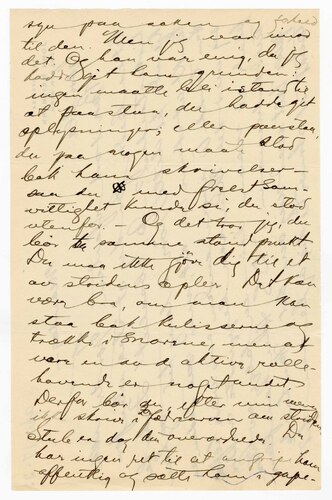 syn paa saken og
til den. Men jeg var imod
det. Og han var enig, da jeg
hadde git ham grunden:
ingen maatte bli istand til
at paastaa, du hadde git
oplysninger, eller paastaa,
du paa nogen maate stod
bak hans skrivelser –
saa du med freest Sam-
vittighet kunde si, du stod
utenfor. – Og det tror jeg, du
bør ta samme standpunkt
Du maa ikke gjøre dig til et
av stridens epler. Det kan
være bra, om man kan
staa bak kulisserne og
trække i snorene, men at
være en saa aktiv, rolle-
havende er noget andet.
Derfor bør du, efter min mening
ikke skrive i om striden
stule en dag den overordnede. Du
har ingen ret til at angripe ham
offentlig og sætte ham i gape-